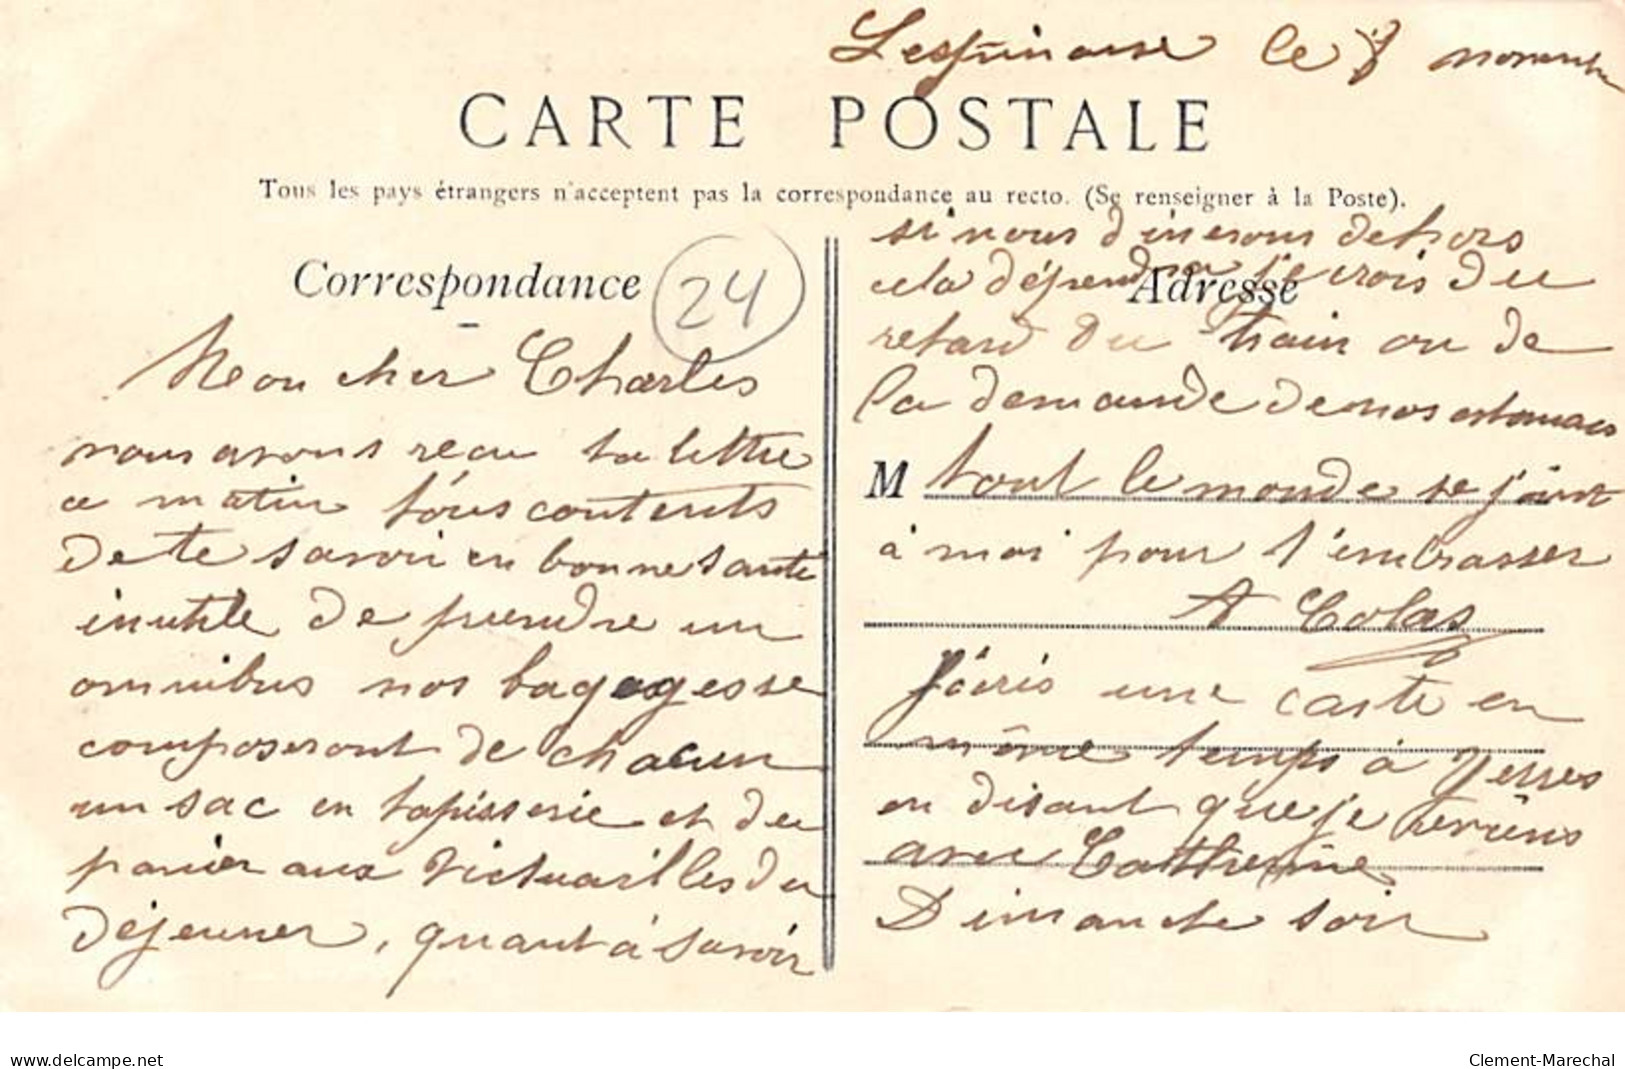 Lespinasse le 8 novembre
CARTE POSTALE
Tous les pays étrangers n'acceptent pas la correspondance au recto. (Se renseigner à la Poste).
Correspondance
24
Mon cher Charles
nous avons recu ta lettre
ce matin tous contents
de te savoir en bonne santé
inutile de prendre un
omnibus nos bagages se
composeront de chacun
un sac en tapisserie et du
panier aux victuailles du
déjeuner, quant à savoir
si nous dinerons dehors
Adresse
cela dépendra je crois du
retard du train ou de
la demande de nos estomacs
M tout le monde se joint
à moi pour t'embrasser
A Colas
J'écris une carte en
même temps à Yerres
en disant que je reviens
avec Catherine
Dimanche soir
www.delcampe.net
Clement-Marechal